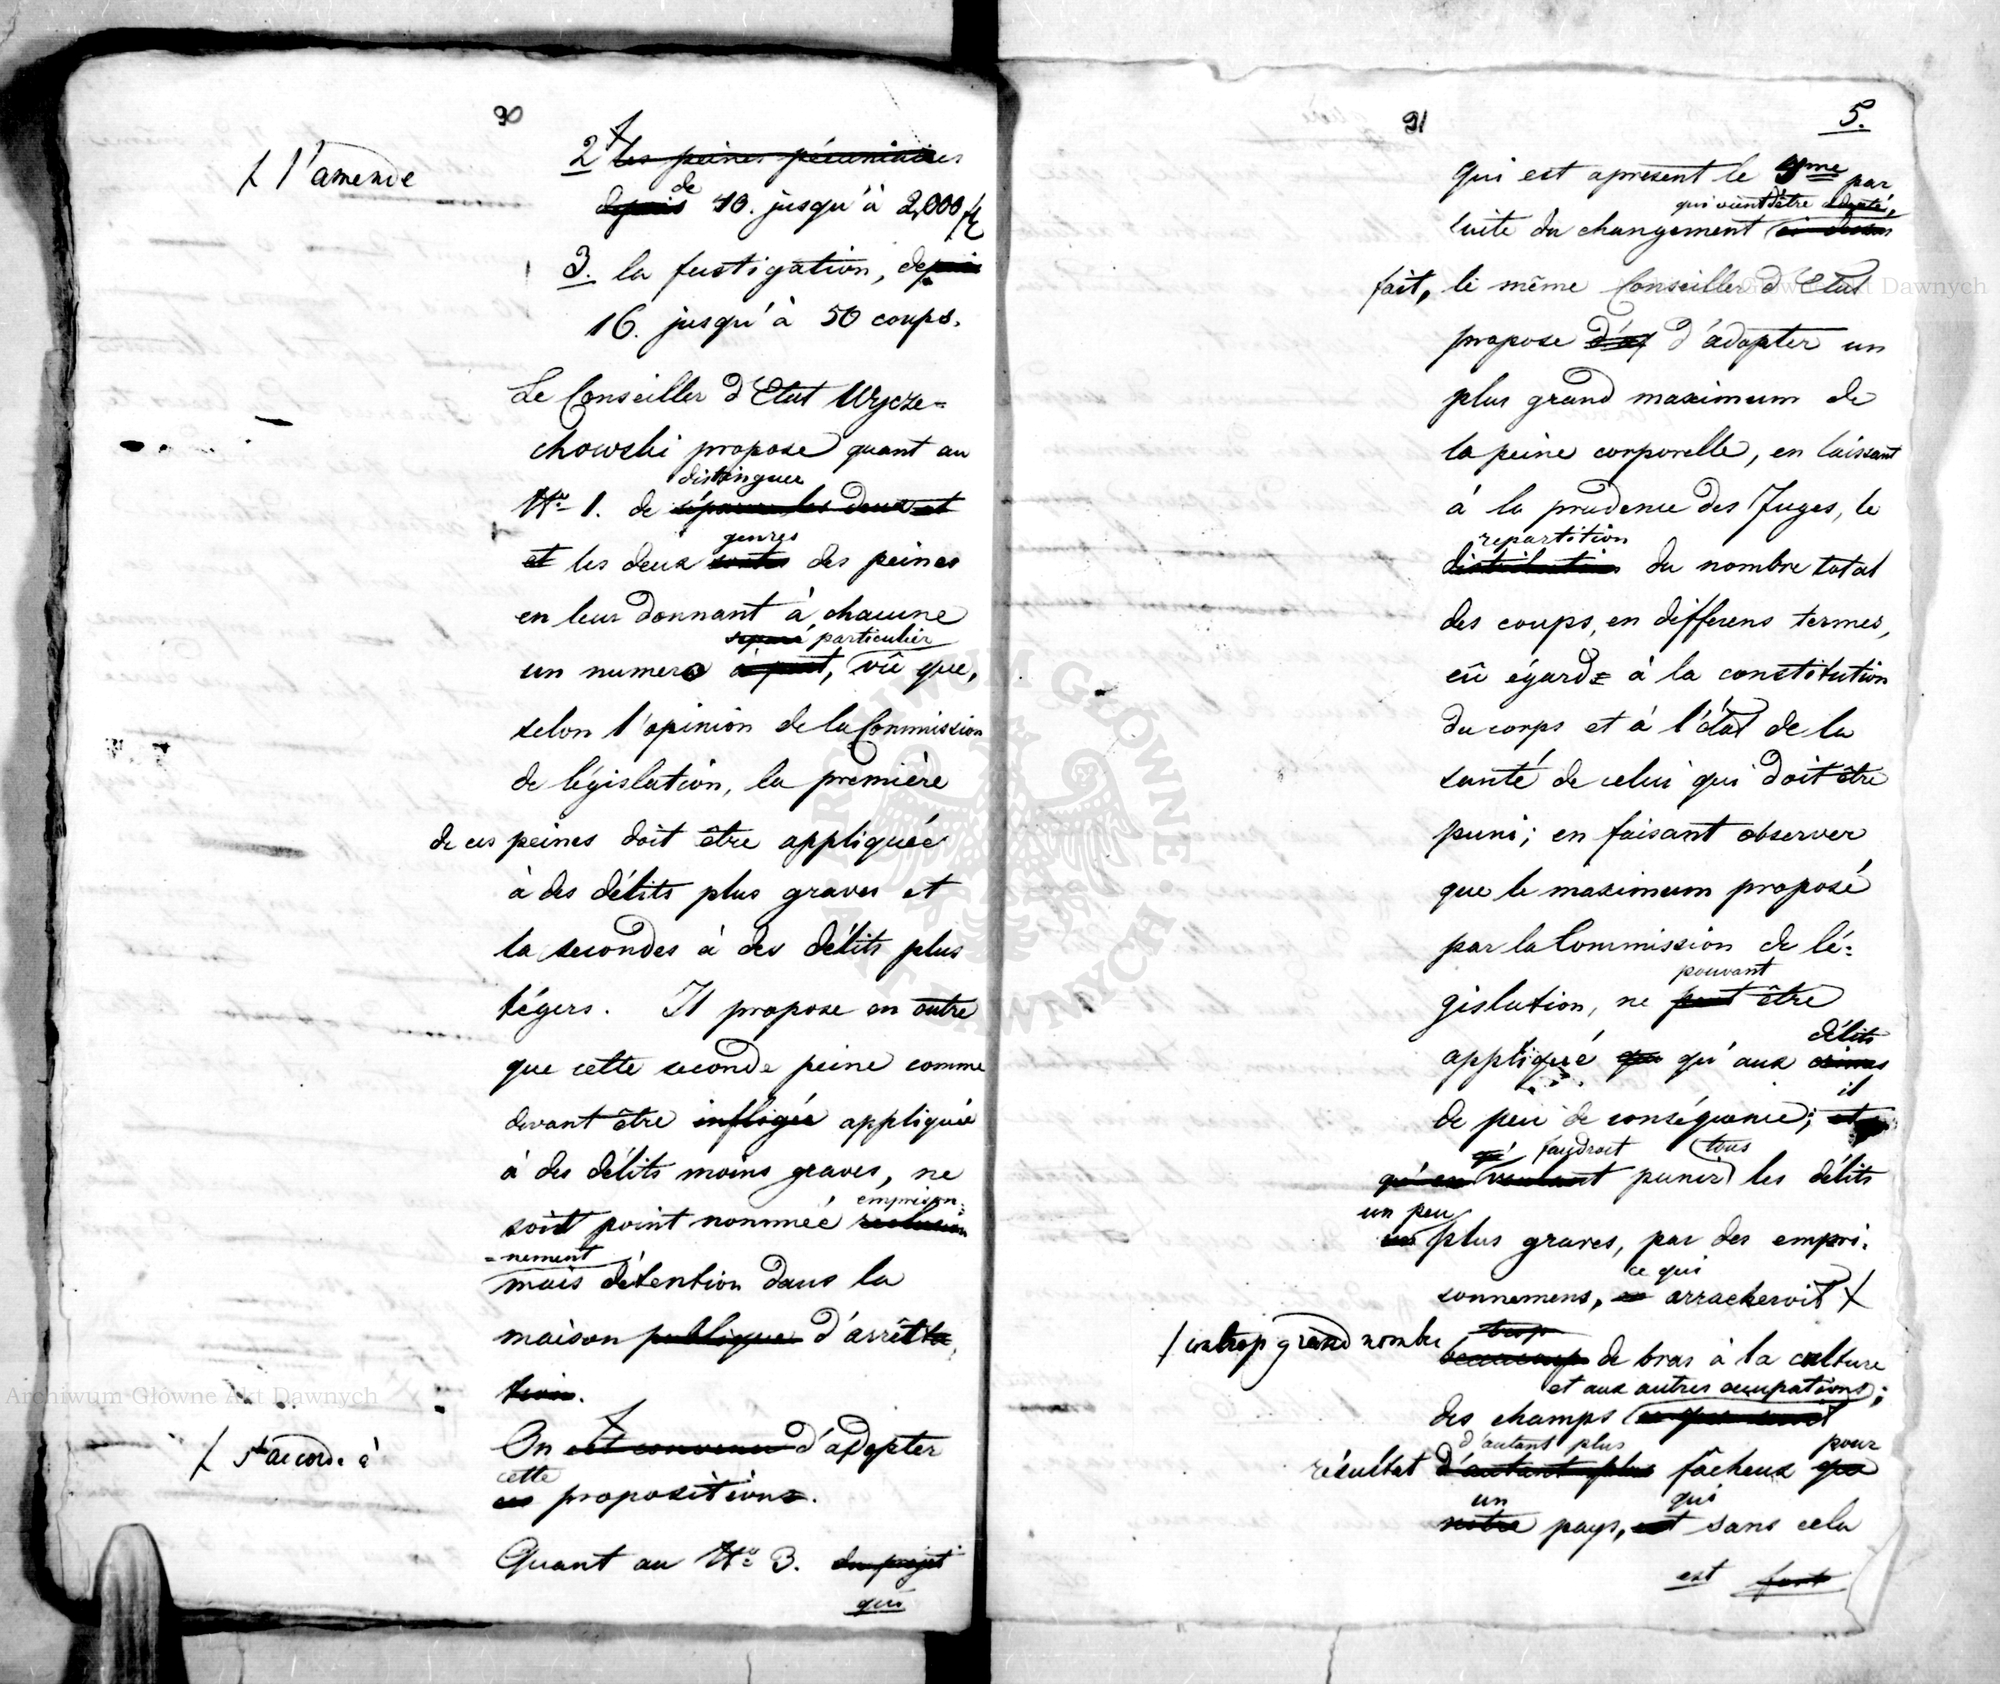 90
2 les peines pécuniaires
⌊ l'amende
de
depuis 10. jusqu'à 2,000 f
3. la fustigation, depuis
16. jusqu'à 50 coups.
Le Conseiller d'Etat Wycze=
chowski propose quant au
distinguer
No 1. de séparer les deux et
genres
et les deux sortes des peines
en leur donnant à chacune
separé particulier
un numero à part, vû que,
selon l'opinion de la Commission
de législation, la première
de ces peines doit être appliquée
à des délits plus graves et
la secondes à des délits plus
légers. Il propose en outre
que cette seconde peine comme
devant être infligée appliquée
à des délits moins graves, ne
emprison=
soit point nommée reclusion
=nement
mais détention dans la
maison publique d'arrêt
On est convenu d'adopter
⌊ s'accorde à
cette
ces propositions.
Quant au No 3. du projet
qui
91
5.
qui est apresent le 4me par
qui vient d'être adopté,
suite du changement ci dessus
fait, le même Conseiller d'Etat
propose d'ad d'adopter un
plus grand maximum de
la peine corporelle, en laissant
à la prudence des Juges, le
repartition
distribution du nombre total
des coups, en differens termes,
eû égard à la constitution
du corps et à l'état de la
santé de celui qui doit être
puni; en faisant observer
que le maximum proposé
par la Commission de lé=
pouvant
gislation, ne peut être
délits
appliqué que qu'aux crimes
il
de peu de conséquence; et
faudroit tous
qu'en voulant punir les délits
un peu
plus graves, par des empri=
ce qui
sonnemens, arracheroit
trop
⌊ un trop grand nombre beaucoup de bras à la culture
et aux autres occupations;
des champs ce qui seroit
d'autant plus pour
résultat d'autant plus fâcheux que
un qui
notre pays, est sans cela
est fort
Archiwum Główne Akt Dawnych
ARCHIWUM GŁÓWNE AKT DAWNYCH
Główne Akt Dawnych